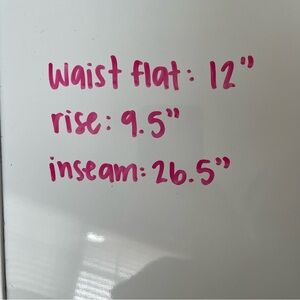 waist flat: 12"
rise: 9.5"
inseam: 26.5"